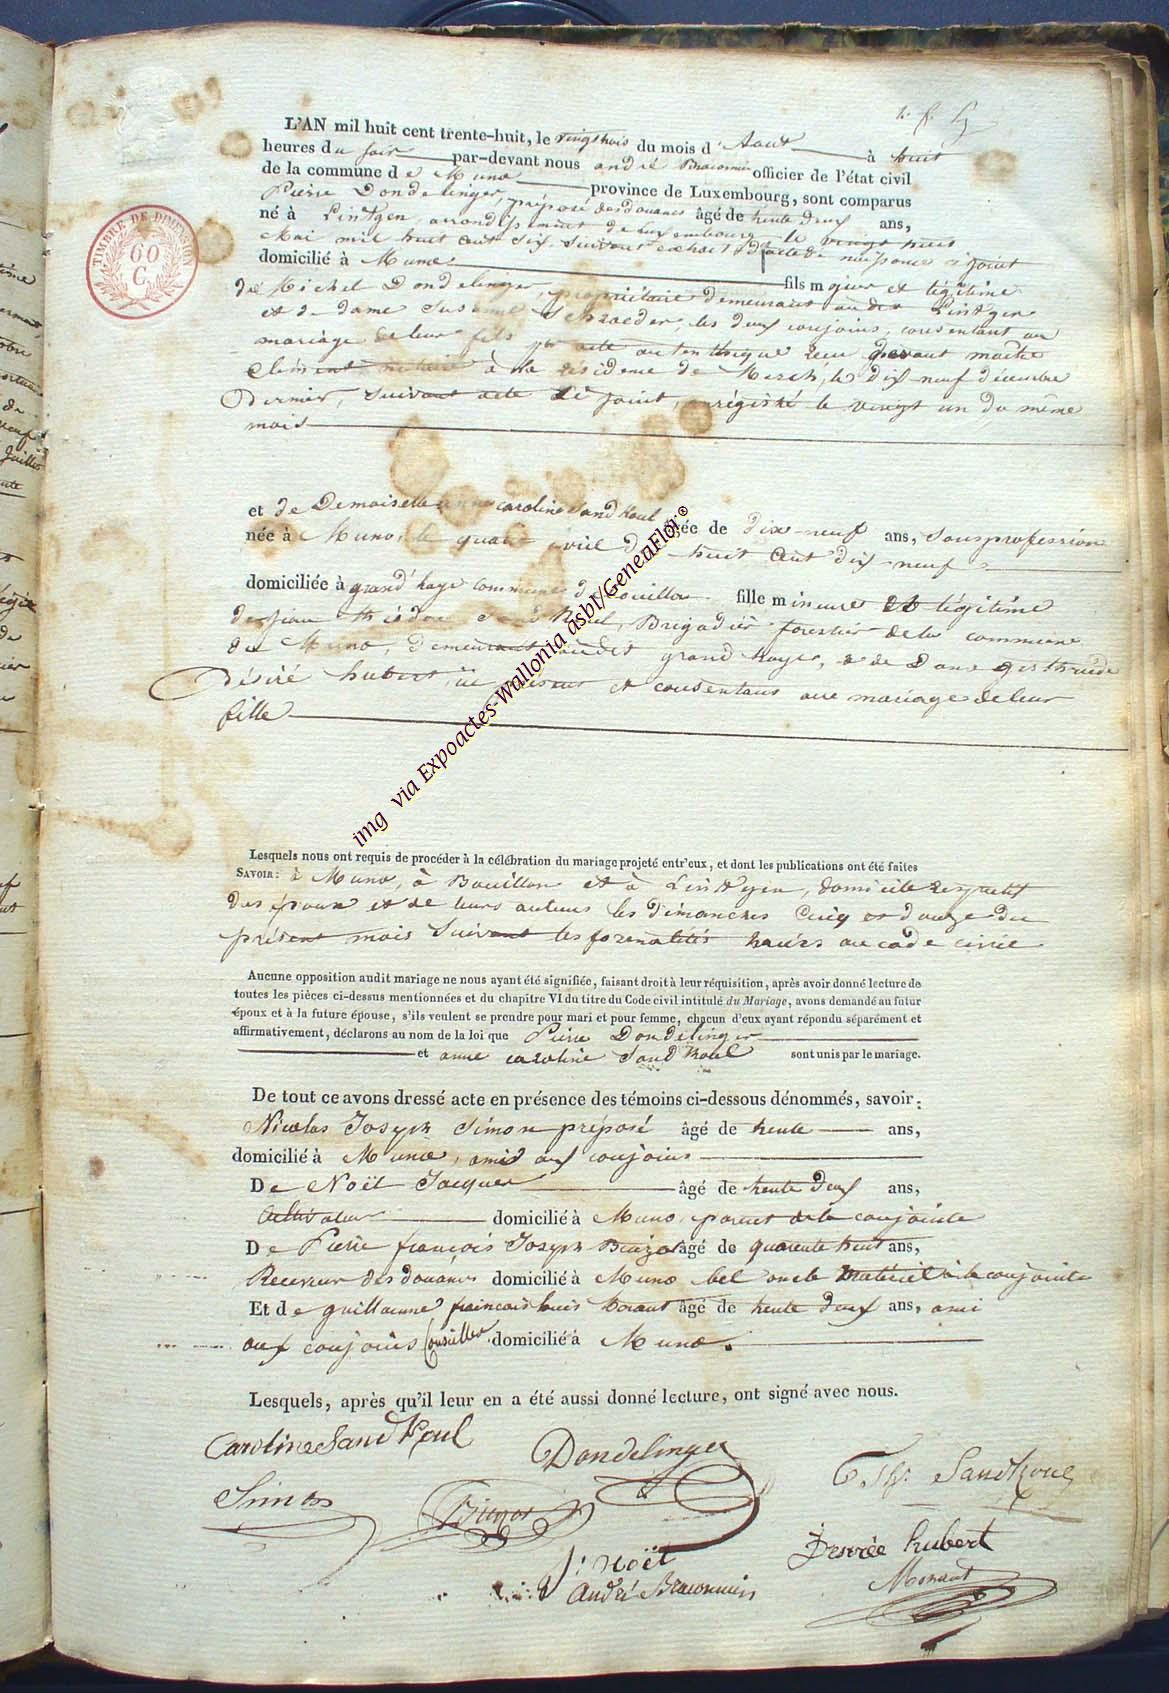 L'AN mil huit cent trente-huit, le vingt trois du mois d'Aout à huit
heures du soir par-devant nous andré Braconnier officier de l'état civil
de la commune de Muno province de Luxembourg, sont comparus
Pierre Dondelinger, préposé des douanes âgé de trente deux ans,
né à Lintgen, arrondissement de Luxembourg le vingt huit
Mai mil huit cent six, suivant extrait d'acte de naissance ci joint
domicilié à Muno fils majeur et légitime
de Michel Dondelinger, propriétaire demeurant audit Lintgen
et de dame Susanne Schroeder, les deux conjoins, consentant au
mariage de leur fils par acte autentique reçu devant maitre
Clément notaire à la residence de Mersch, le dix neuf décembre
Dernier, suivant acte ci joint, enrégistré le vingt un du même
mois
et de Demoiselle anne caroline SandKoul âgée de dix-neuf ans, sans profession
née à Muno, le quatre avril dix huit cent dix-neuf
domiciliée à grand'haye commune de Bouillon fille mineure et légitime
de jean théodore SandKoul, Brigadier forestier de la commune
de Muno, demeurant audit grand haye, & de Dame gerthrude
Désiré hubert, ici présent et consentans au mariage de leur
fille
img via Expoactes-Wallonia asbl/GeneaFlor ©
Lesquels nous ont requis de procéder à la célébration du mariage projeté entr'eux, et dont les publications ont été faites
SAVOIR: à Muno, à Bouillon et à Lintgen, domicile respectif
Des époux et de leurs auteurs les dimanches Cinq et douze du
présent mois suivant les formalités au code civil
Aucune opposition audit mariage ne nous ayant été signifiée, faisant droit à leur réquisition, après avoir donné lecture de
toutes les pièces ci-dessus mentionnées et du chapitre VI du titre du Code civil intitulé du Mariage, avons demandé au futur
époux et à la future épouse, s'ils veulent se prendre pour mari et pour femme, chacun d'eux ayant répondu séparément et
affirmativement, déclarons au nom de la loi que Pierre Dondelinger
et anne caroline SandKoul sont unis par le mariage.
De tout ce avons dressé acte en présence des témoins ci-dessous dénommés, savoir:
Nicolas Joseph Simon préposé âgé de trente ans,
domicilié à Muno, ami aux conjoins
De Noël Jacques âgé de trente deux ans,
Cultivateur domicilié à Muno, parent de la conjointe
De Pierre françois Joseph âgé de quarente huit ans,
Receveur des douanes domicilié à Muno bel oncle maternel à la conjointe
Et de guillaume francois louis âgé de trente deux ans, ami
aux conjoins Conseiller domicilié à Muno.
Lesquels, après qu'il leur en a été aussi donné lecture, ont signé avec nous.
Caroline SandKoul
Dondelinger
SandKoul
Simon
J: Noël
Desirée hubert
André Braconnier
TIMBRE DE DIMENSION
60
C.